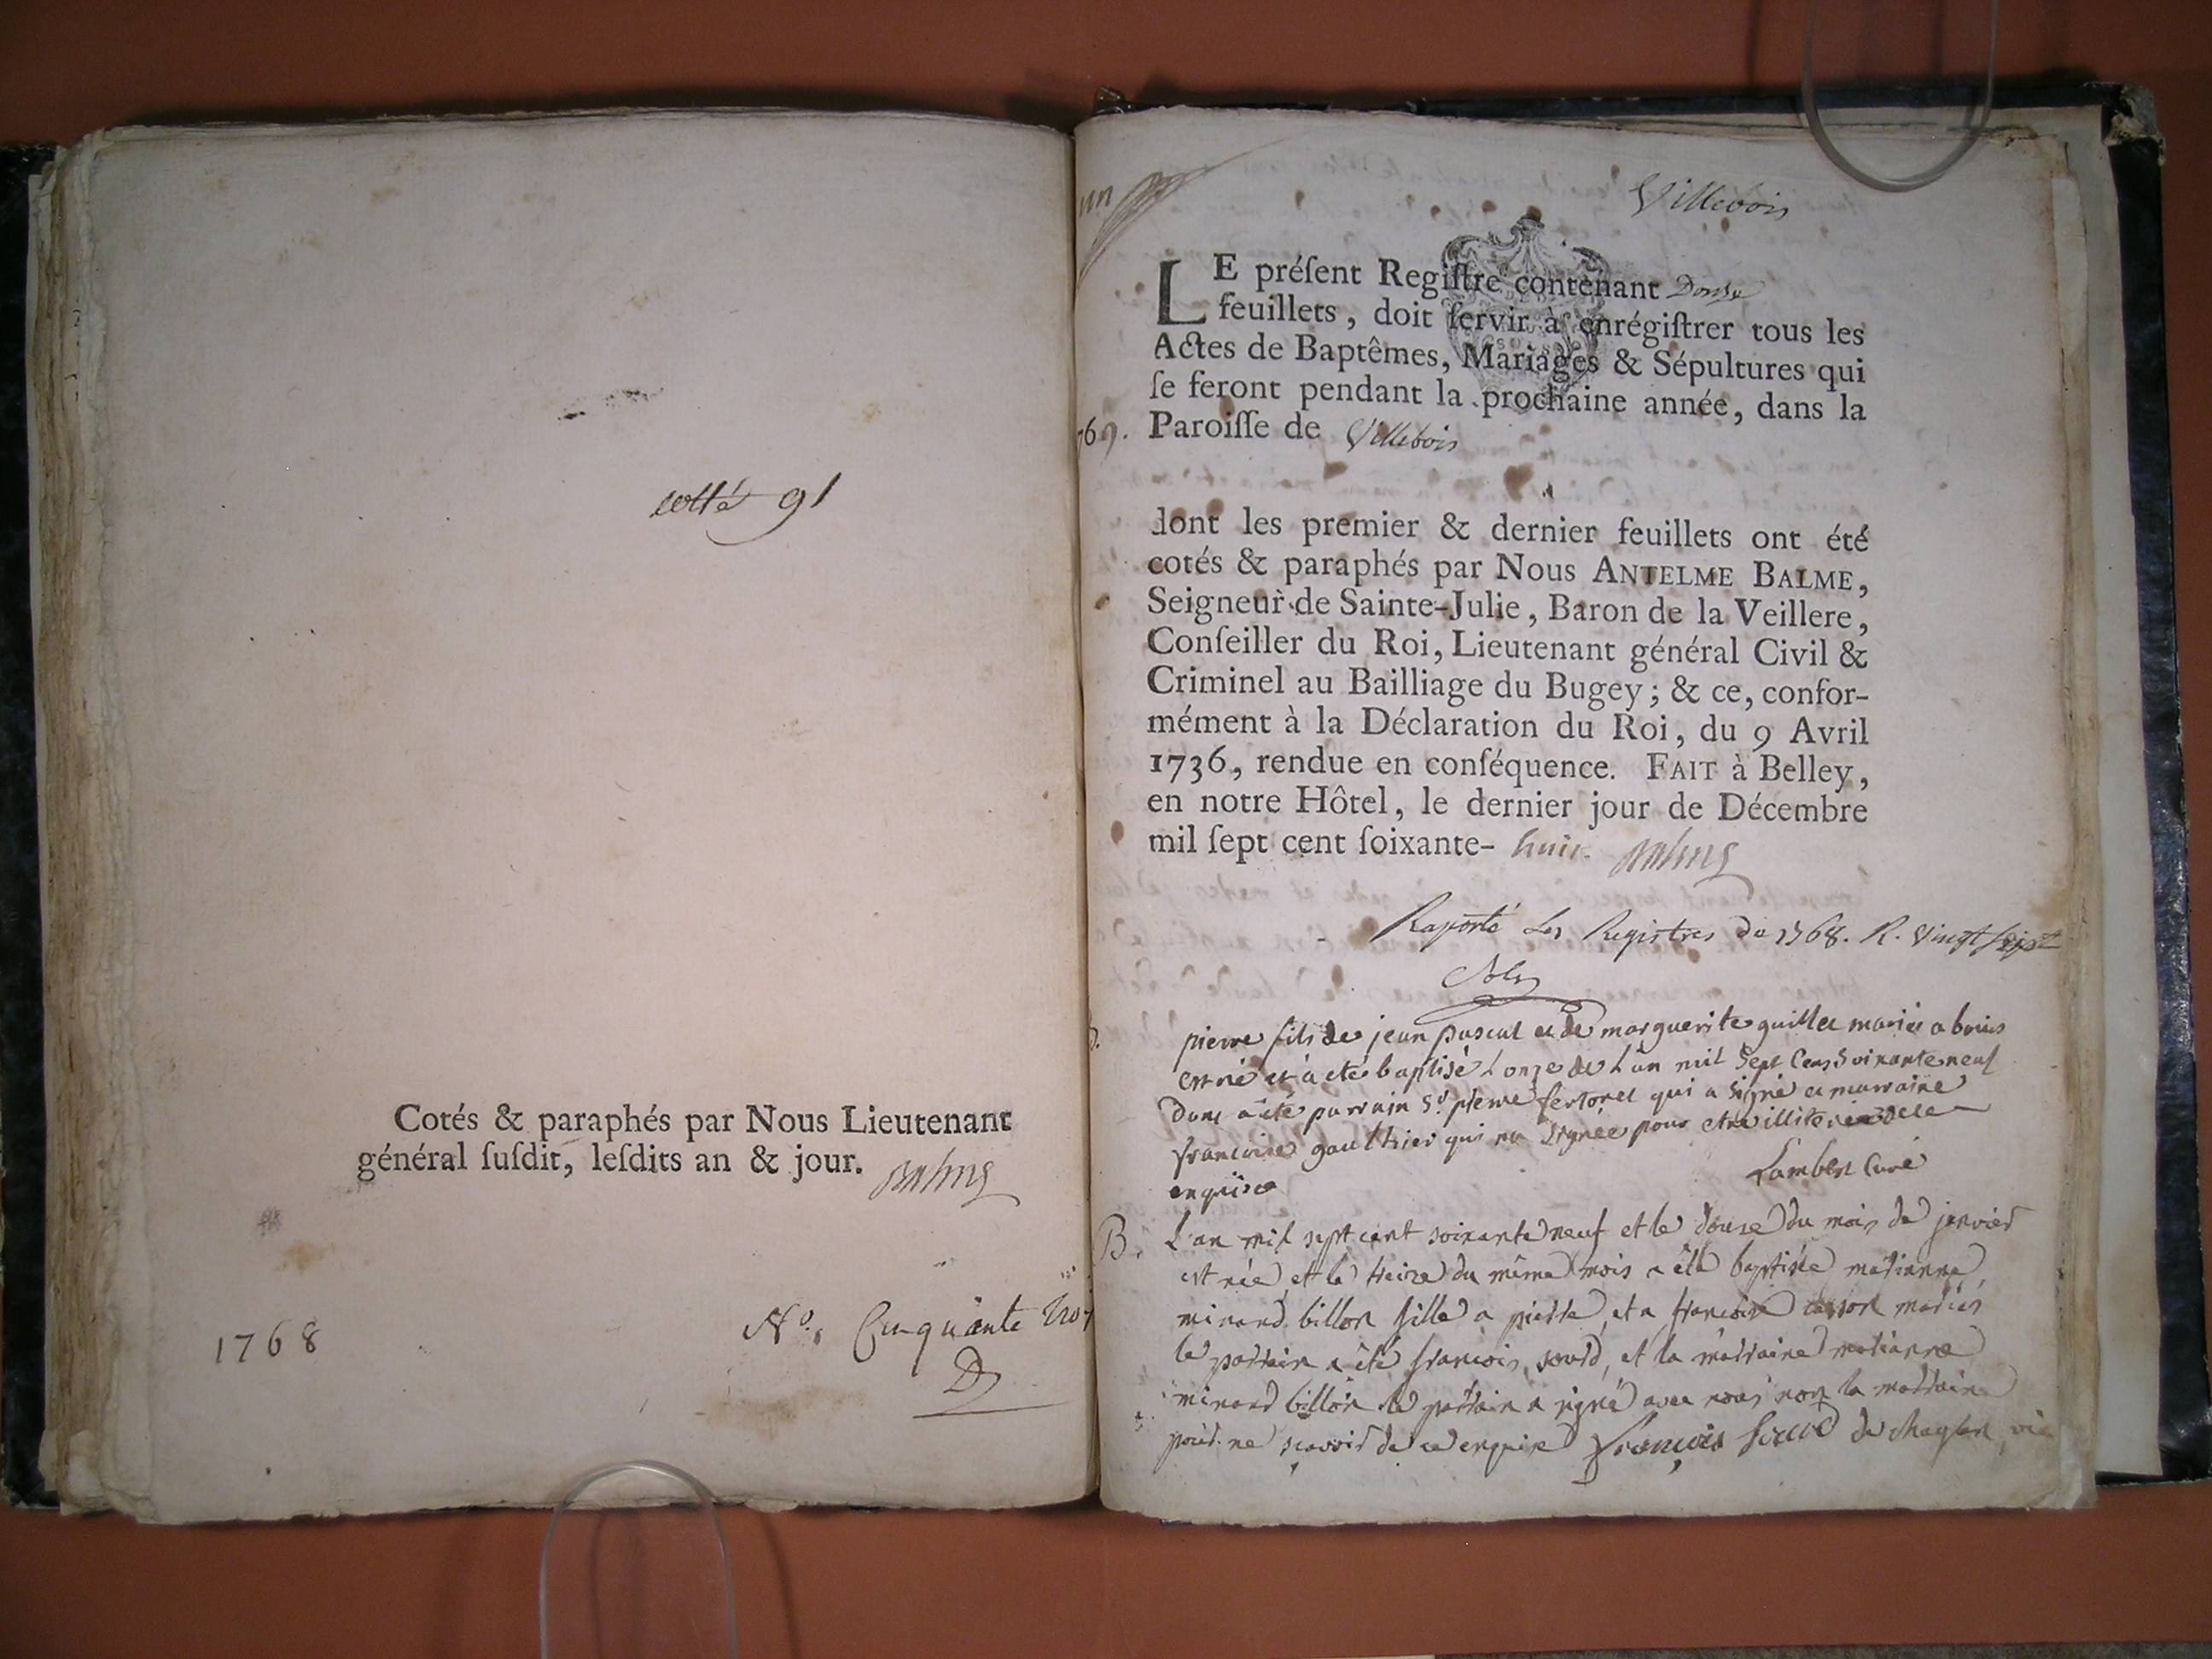 cotté 91
Cotés & paraphés par Nous Lieutenant
général ſuſdit, leſdits an & jour. Balme
1768
N.º Cinquante troi
un
Villebois
LE préſent Regiſtre contenant Douze
feuillets, doit ſervir à enrégiſtrer tous les
Actes de Baptêmes, Mariages & Sépultures qui
ſe feront pendant la prochaine année, dans la
769. Paroiſſe de Villebois
dont les premier & dernier feuillets ont été
cotés & paraphés par Nous ANTELME BALME,
Seigneur de Sainte-Julie, Baron de la Veillere,
Conſeiller du Roi, Lieutenant général Civil &
Criminel au Bailliage du Bugey; & ce, confor-
mément à la Déclaration du Roi, du 9 Avril
1736, rendue en conſéquence. FAIT à Belley,
en notre Hôtel, le dernier jour de Décembre
mil ſept cent ſoixante- huit. Balme
Raporté Les Registres de 1768. R. Vingt sept
pierre fils de jean pascal et de marguerite guillet mariés a bouis
est né et a eté baptisé L onze de L an mil Sept Cens Soixante neuf
dont a été parrain Sr pierre sertonet qui a signé et marraine
francoise gauthier qui na signée pour etre illiterée de ce
enquise
Lambert Curé
B. L'an mil sept cent soixante neuf et le douze du mois de janvier
est née et le treize du même mois a été baptisée marianne
minand billon fille a pierre et a francoise mariés
le parrain a été francois sourd, et la marraine marianne
minand billon le parrain a signé avec nous non la marraine
pour ne sçavoir de ce enquise François